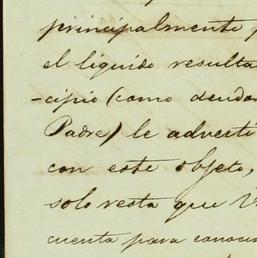 principalmente,
el liquido resulta
-cipio (como deudor
Padre) le adverti
con este objeto,
solo resta que V
cuenta para conocim